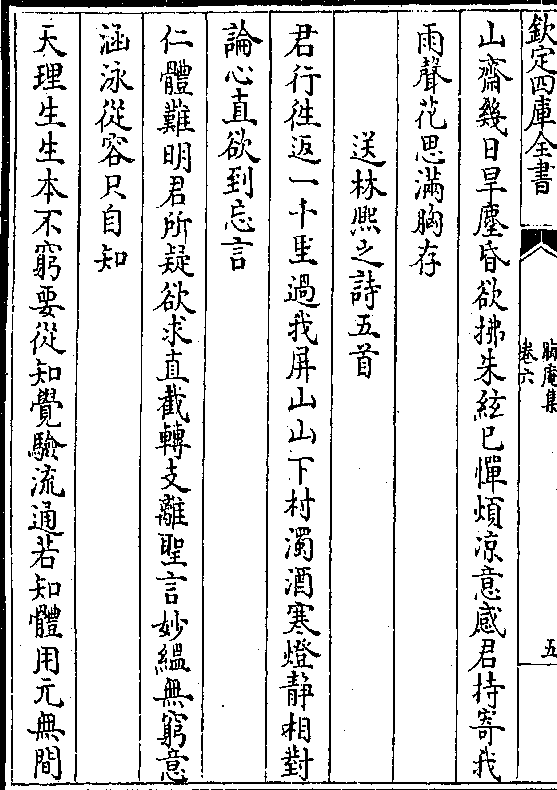 欽定四庫全書
晦庵集
卷六
五
山齋幾日旱塵昏欲拂朱絃已憚煩凉意感君持寄我
雨聲花思滿胸存
送林熈之詩五首
君行往返一千里過我屏山山下村濁酒寒燈静相對
論心直欲到忘言
仁體難明君所疑欲求直截轉支離聖言妙緼無窮意
涵泳從容只自知
天理生生本不窮要從知覺驗流通若知體用元無間